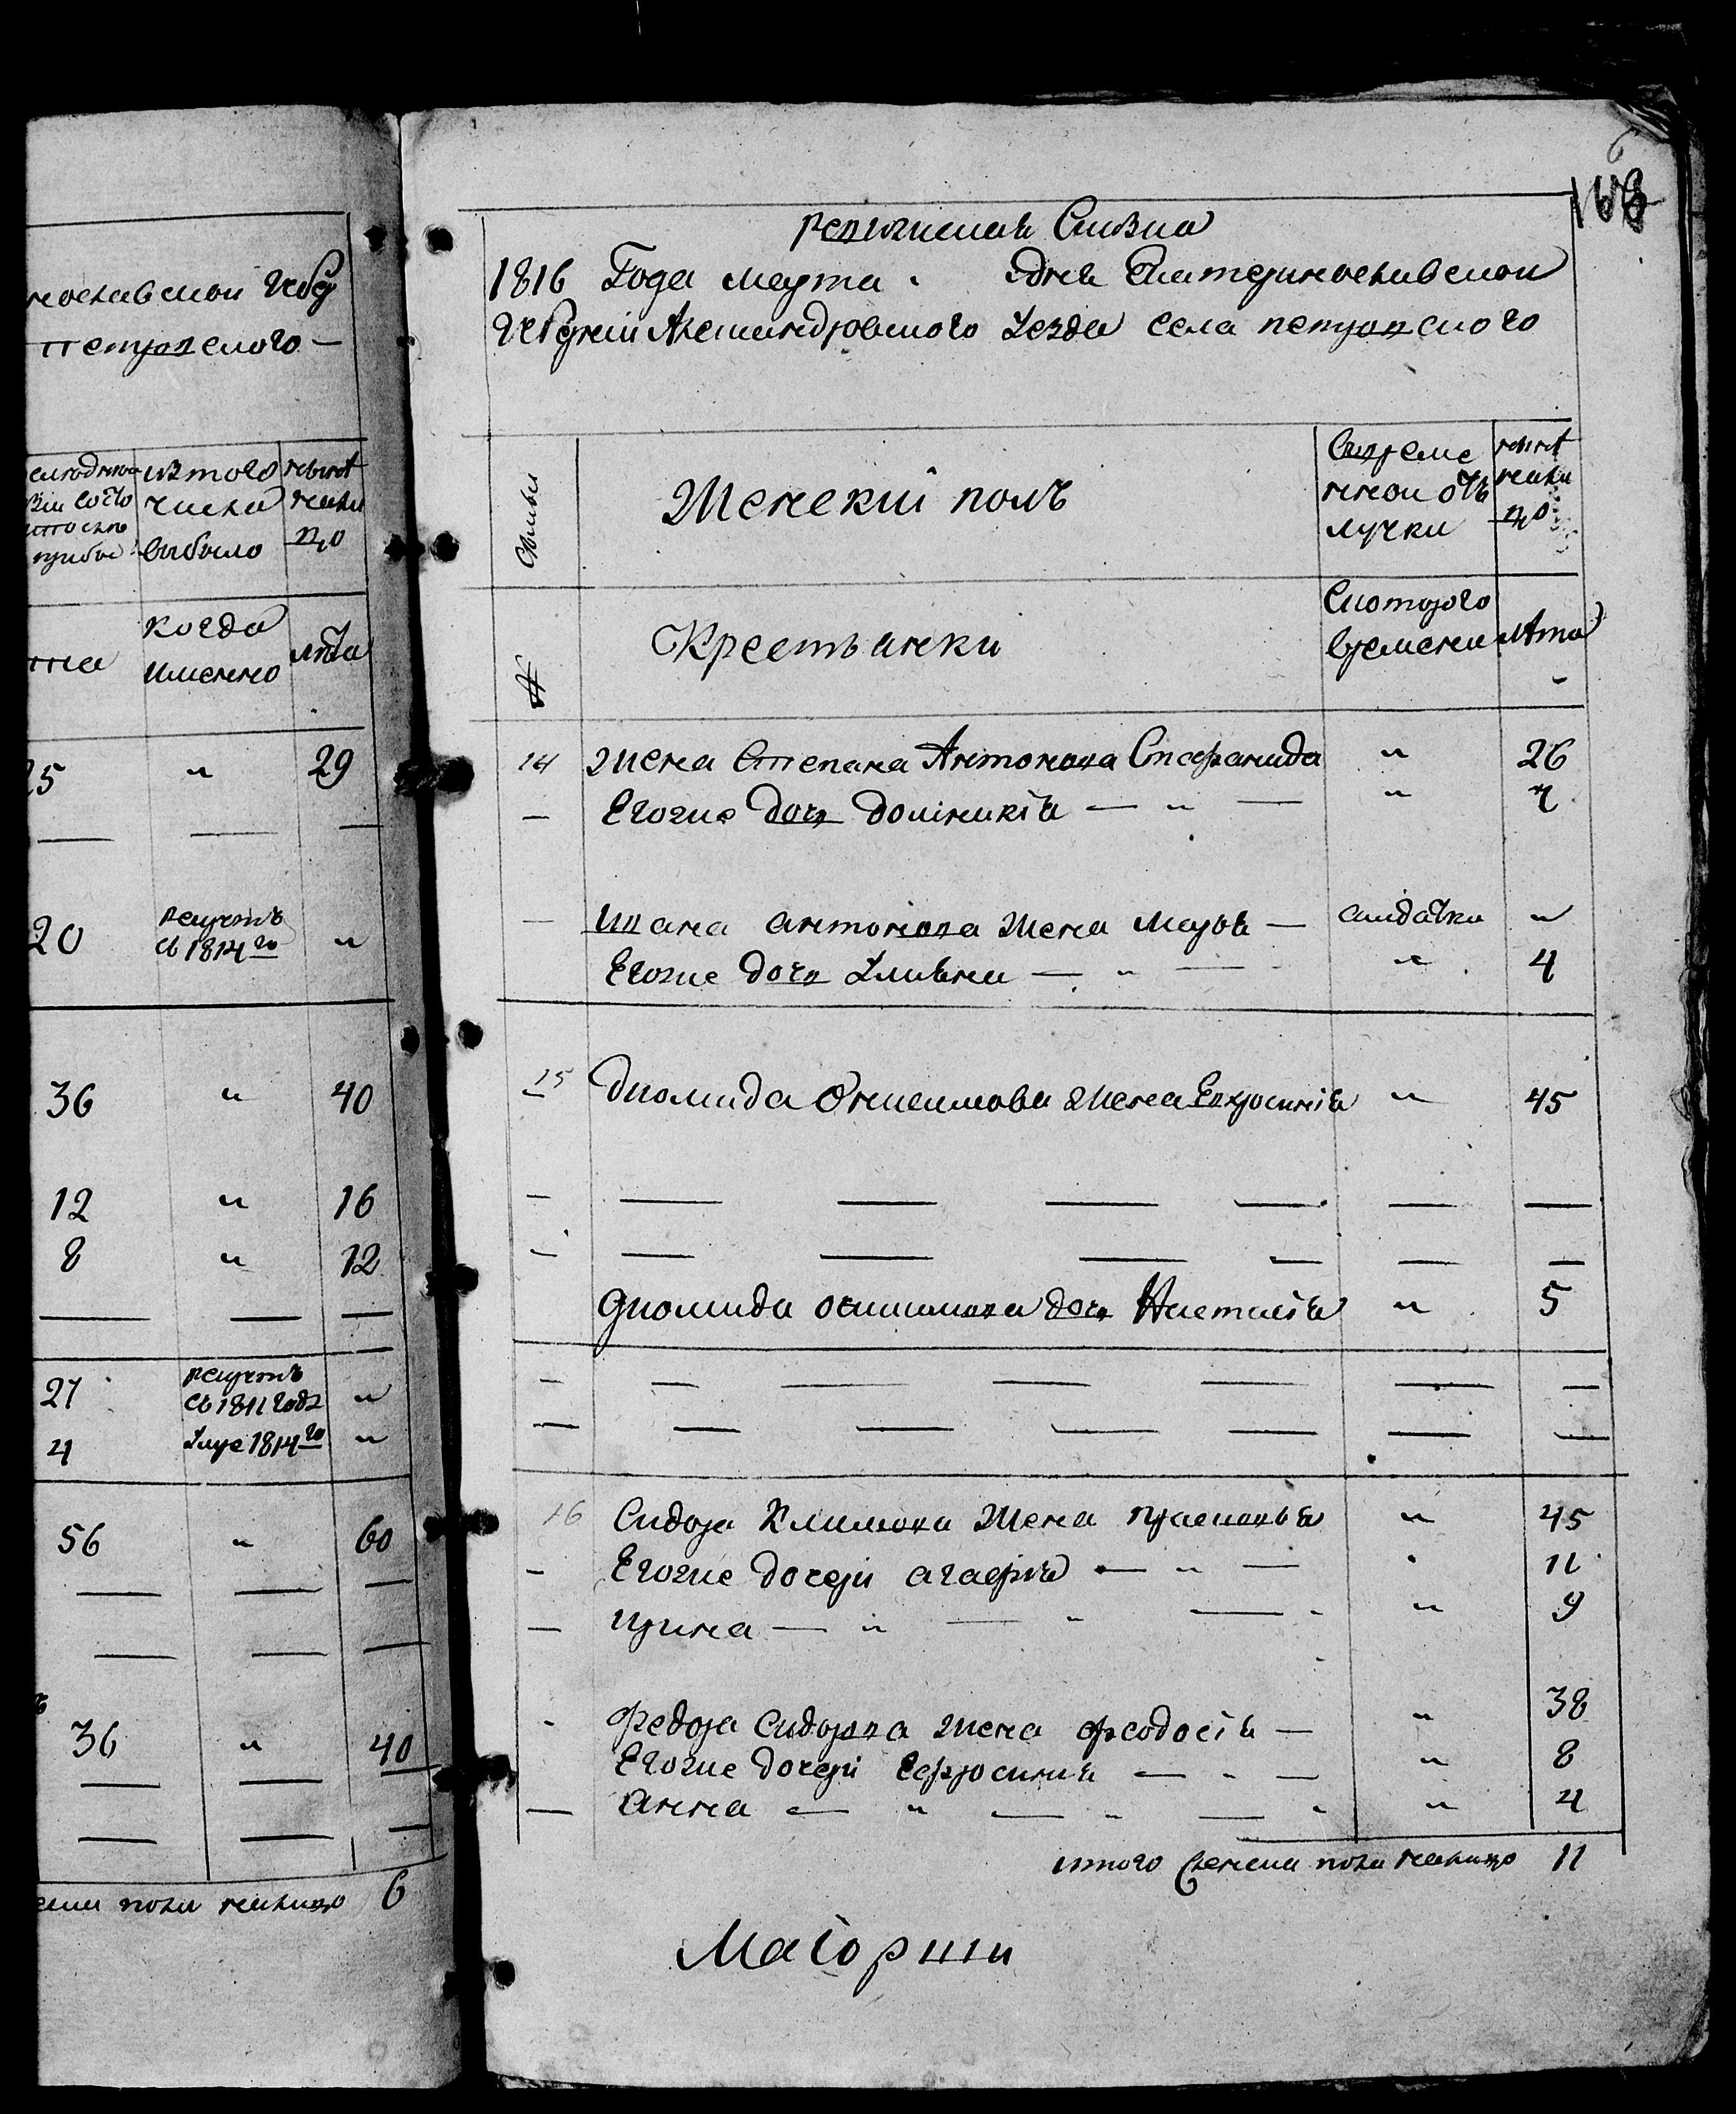 носкавской Губер
петровского —
изтого
числа
выбыло
ныне
налицо
когда
имянно
лѣта
25 " 29
20 рекрутъ съ 1814го "
36 " 40
12 " 16
8 " 12
27 рекрутъ съ 1811 года "
4 Умре 1814го "
56 " 60
36 " 40
пола налицо 6
168
ревизская Сказка
1816 Года марта . дня Екатеринославской
Губерніи Александровского Уезда села петровского
Семьи
Женскій полъ
Вовреме
нной отъ
лучки
ныне
нали
цо
№
Крестьянки
Скоторого
времени
лѣта
14 Жена Степана Антонова Стефанида " 26
— Егоже дочь Домникія — " — " 7
— Ивана антонова жена Марья — салдатка "
Егоже дочь Ульяна — " — " 4
15 Диомида Онисимова жена Евфросинія " 45
Диомида онисимова дочь Настасія " 5
16 Сидора Климова жена прасковья " 45
- Егоже дочери агафия — " — " 11
— ирина — " — " — " 9
- федора сидорова жена феодосія — " 38
Егоже дочери Ефросиния — " — " 8
— анна — " — " — " " 4
итого женска пола налицо 11
Маіорши